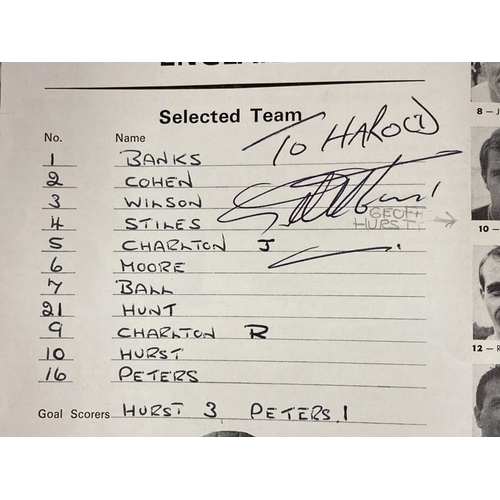 ENGLA
Selected Team
No. Name
TO HAROLD
1 BANKS
2 COHEN
3 WILSON
4 STILES
GEOFF HURST
5 CHARLTON J
6 MOORE
7 BALL
21 HUNT
9 CHARLTON R
10 HURST
16 PETERS
Goal Scorers HURST 3 PETERS.1
8 – J
10 –
12 – R